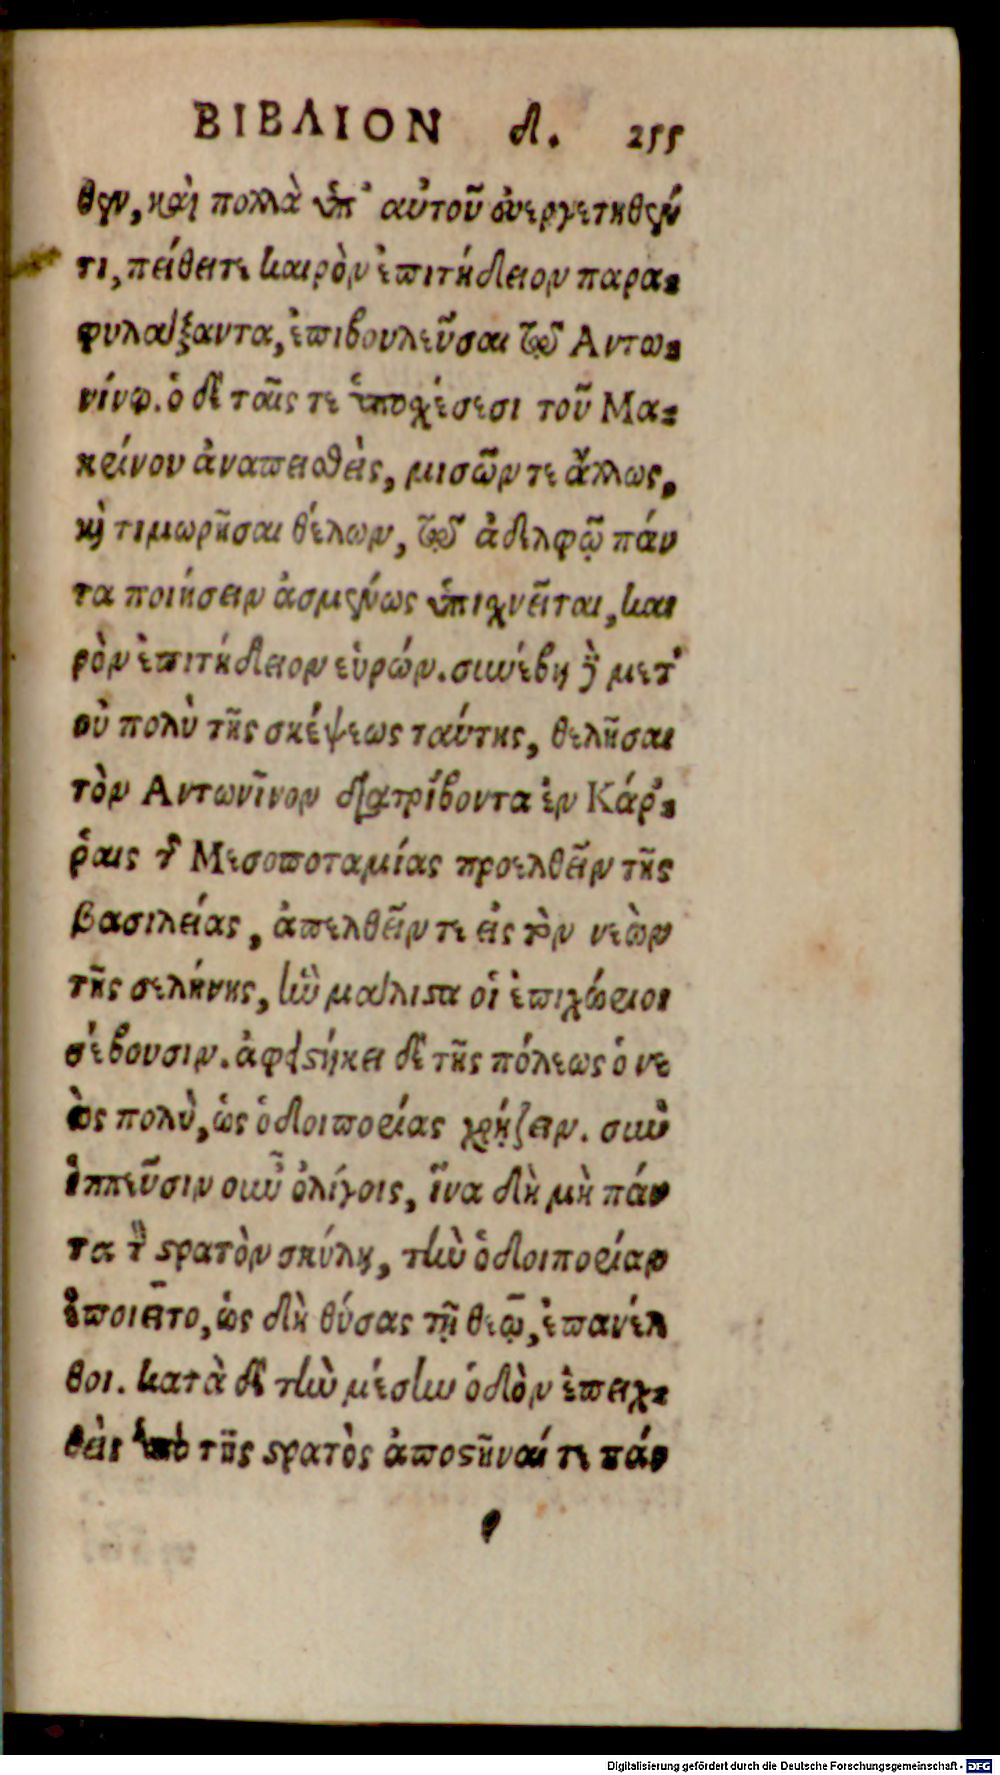 ΒΙΒΛΙΟΝ δ. 255
θεν, καὶ πολλὰ ὑπ' αὐτοῦ εὐεργετηθέν
τι, πείθει τε καιρὸν ἐπιτήδειον παρα-
φυλάξαντα, ἐπιβουλεῦσαι τῷ Ἀντω-
νίνῳ. ὁ δὲ ταῖς τε ὑποχέσεσι τοῦ Μα-
κρίνου ἀναπεισθεὶς, μισῶν τε ἄλλως,
καὶ τιμωρῆσαι θέλων, τῷ ἀδελφῷ πάν
τα ποιήσειν ἀσμένως ὑπιχνεῖται, και
ρὸν ἐπιτήδειον εὑρών. συνέβη δὲ μετ'
οὐ πολὺ τῆς σκέψεως ταύτης, θελῆσαι
τὸν Αντωνῖνον διατρίβοντα ἐν Κάρ-
ῥαις τῆς Μεσοποταμίας προελθεῖν τῆς
βασιλείας, ἀπελθεῖν τε εἰς τὸν νεὼν
τῆς σελήνης, ἣν μάλιστα οἱ ἐπιχώριοι
σέβουσιν. ἀφειστήκει δὲ τῆς πόλεως ὁ νε
ὼς πολὺ, ὡς ὁδοιπορίας χρῄζειν. σὺν
ἱππεῦσιν οὖν ὀλίγοις, ἵνα δὴ μὴ πάν
τα τὸν στρατὸν σκύλῃ, τὴν ὁδοιπορίαν
ἐποιεῖτο, ὡς δὴ θύσας τῇ θεῷ, ἐπανέλ
θοι. κατὰ δὲ τὴν μέσην ὁδὸν ἐπειχ-
θεὶς ὑπὸ τῆς γρατὸς ἀποστῆναί τε πάν